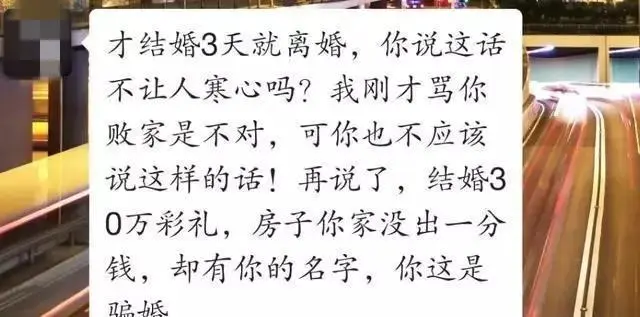 才结婚3天就离婚，你说这话
不让人寒心吗？我刚才骂你
败家是不对，可你也不应该
说这样的话！再说了，结婚3
0万彩礼，房子你家没出一分
钱，却有你的名字，你这是
骗婚